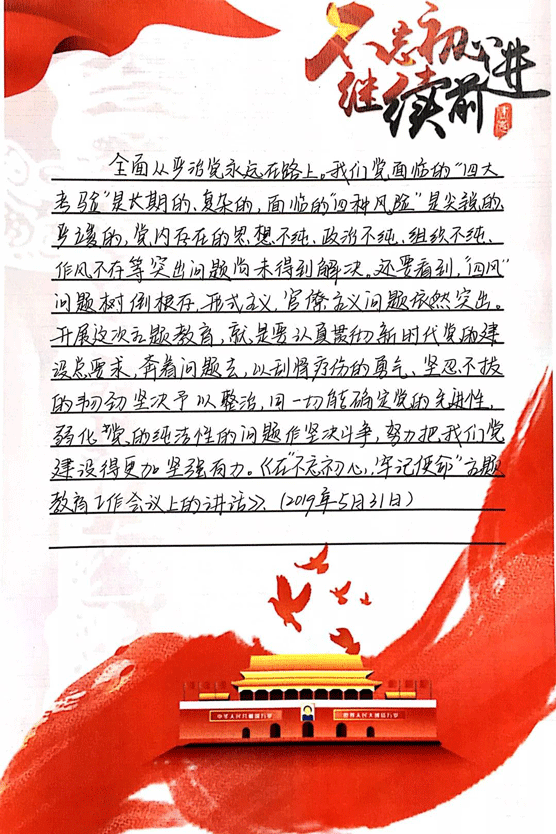 不忘初心
继续前进
全面从严治党永远在路上。我们党面临的“四大
考验”是长期的、复杂的，面临的“四种风险”是尖锐的
严峻的，党内存在的思想不纯、政治不纯、组织不纯、
作风不存等突出问题尚未得到解决。还要看到，“四风”
问题树倒根存，形式主义，官僚主义问题依然突出。
开展这次主题教育，就是要认真贯彻新时代党的建
设总要求，奔着问题去，以刮骨疗伤的勇气、坚忍不拔
的韧劲坚决予以整治，同一切
党的先进性，
弱化党的纯洁性的问题作坚决斗争，努力把我们党
建设得更加坚强有力。《在“不忘初心，牢记使命”主题
教育工作会议上的讲话》，（2019年5月31日）
中华人民共和国万岁
世界人民大团结万岁